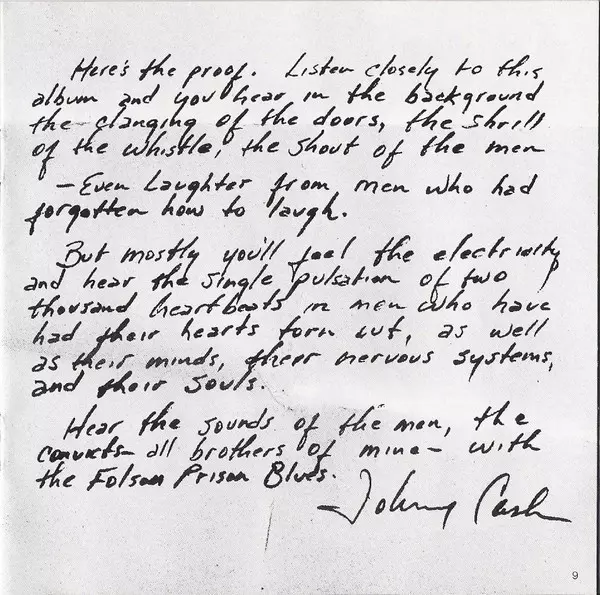 Here's the proof. Listen closely to this
album and you hear in the background
the clanging of the doors, the shrill
of the whistle, the shout of the men
— Even Laughter from men who had
forgotten how to laugh.
But mostly you'll feel the electricity
and hear the single pulsation of two
thousand heartbeats in men who have
had their hearts torn out, as well
as their minds, their nervous systems,
and their souls.
Hear the sounds of the men, the
convicts— all brothers of mine— with
the Folsom Prison Blues.
Johnny Cash
9